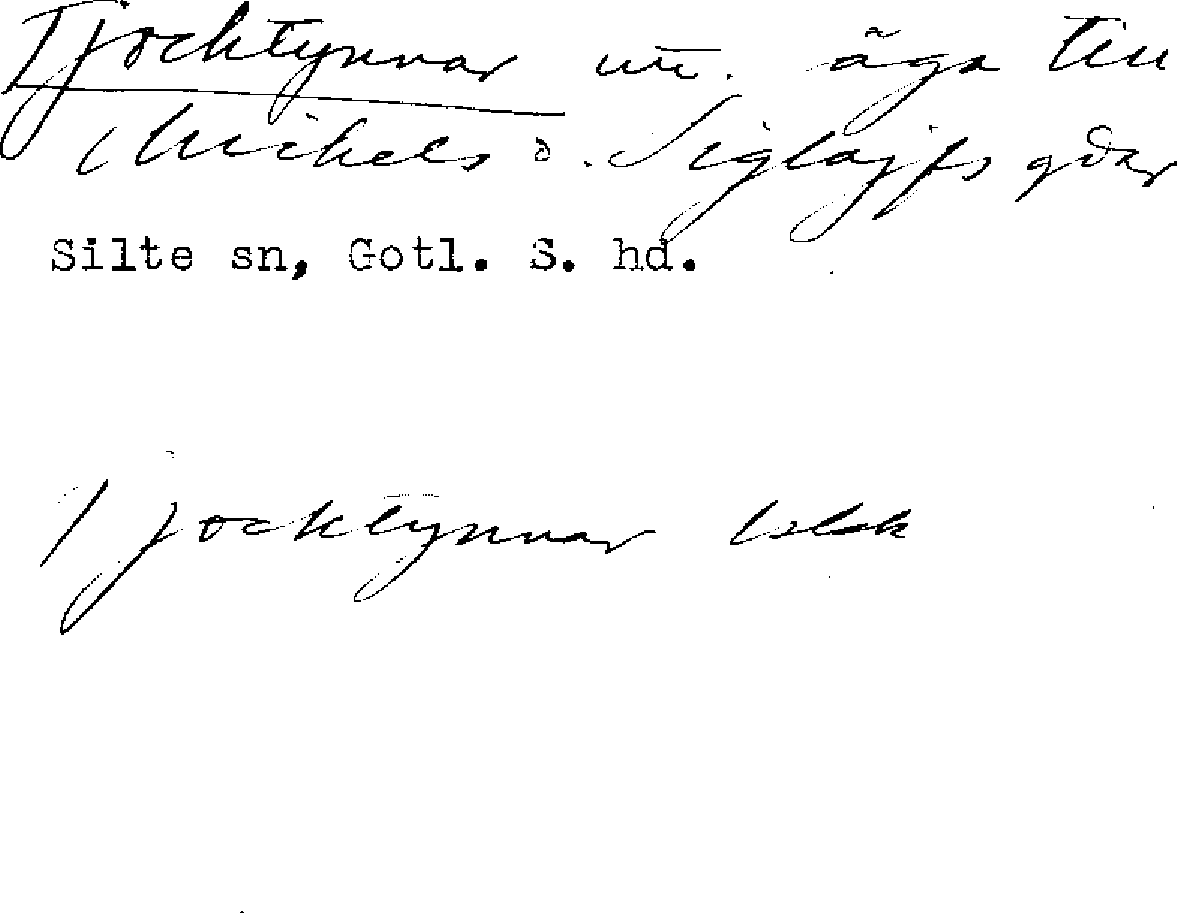 Tjocktynnar äga till
Mikels o. Siglajfs gdar
Silte sn, Gotl. S. hd.
Tjocktynnar